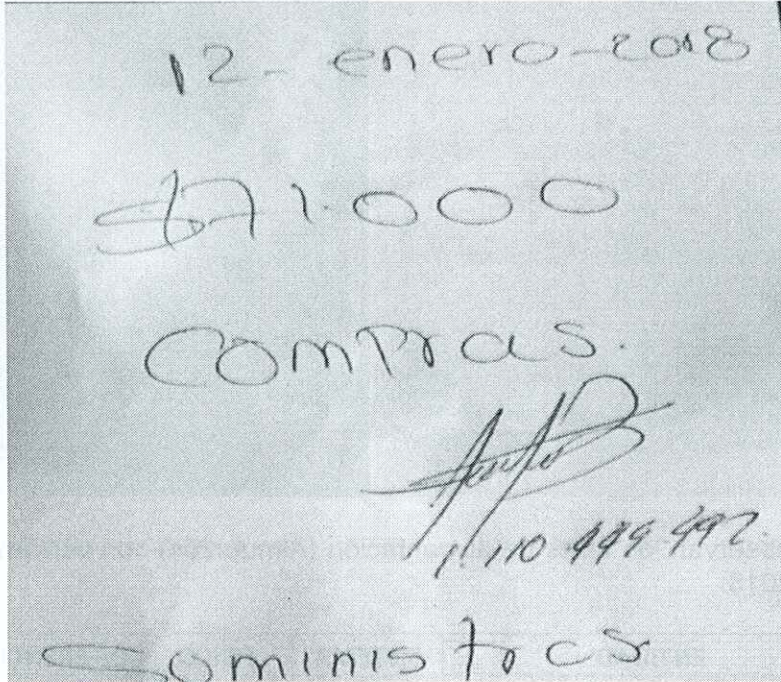 12 - enero - 2018
$71.000
Compras.
1.110.499 492.
Suministros